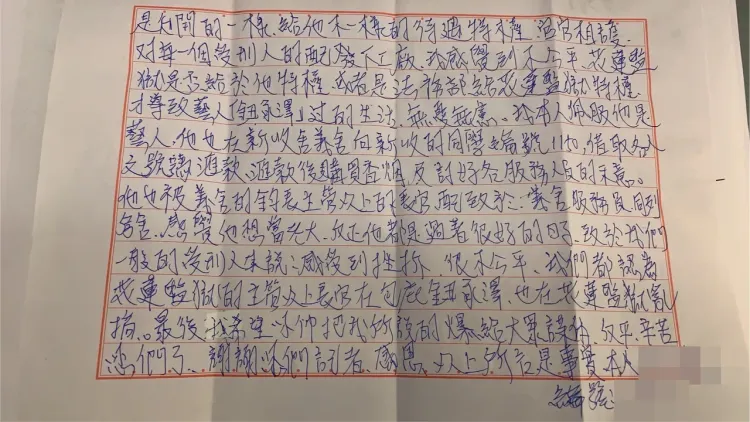 是有關的一樣、給他不一樣的待遇特權、官官相護、
對每一個受刑人的配發下工廠、我感覺到不公平、花蓮監
獄是否給於他特權、或者是法務部給花蓮監獄特權
才導致藝人「鈕承澤」過的生活、無憂無慮。我本人佩服他是
藝人、他也在新收舍義舍向新收的同學編號1110、借取各人
文號

匯款、匯款後購買香烟、及討好各服務人員的末意。
他也被義舍的
主管以上的長官配致於:義舍服務員、同
舍、感覺他想當老大、反正他都是過著很好的日子、致於我們
一般的受刑人來說:感後到挫折、很不公平、我們都認為
花蓮監獄的主管以上長官在包庇鈕承澤、也在花蓮監獄亂
搞。最後、我希望你們把我所說的爆給大眾
公平、辛苦
您們了、謝謝你們記者、感恩。以上所言是事實本人
編號